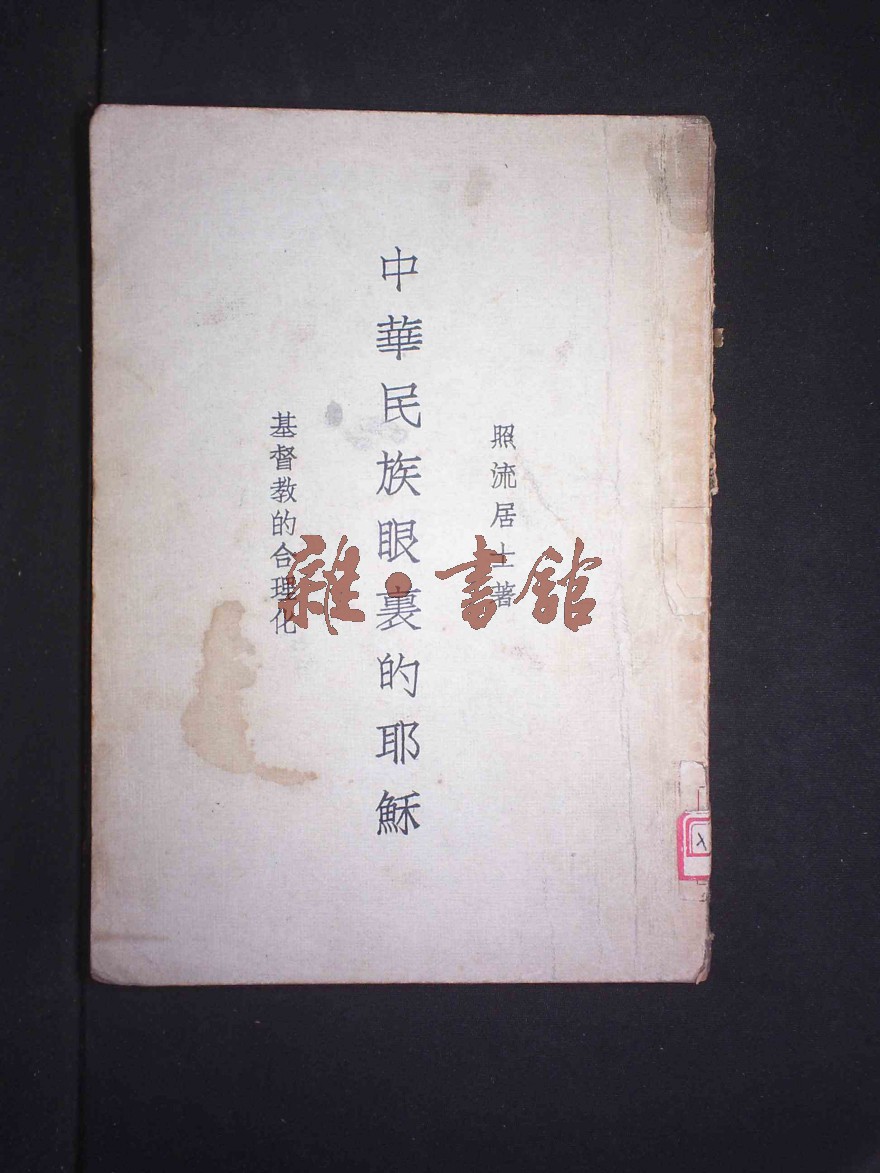 照流居士著
中華民族眼裏的耶穌
基督教的合理化
雜·書館